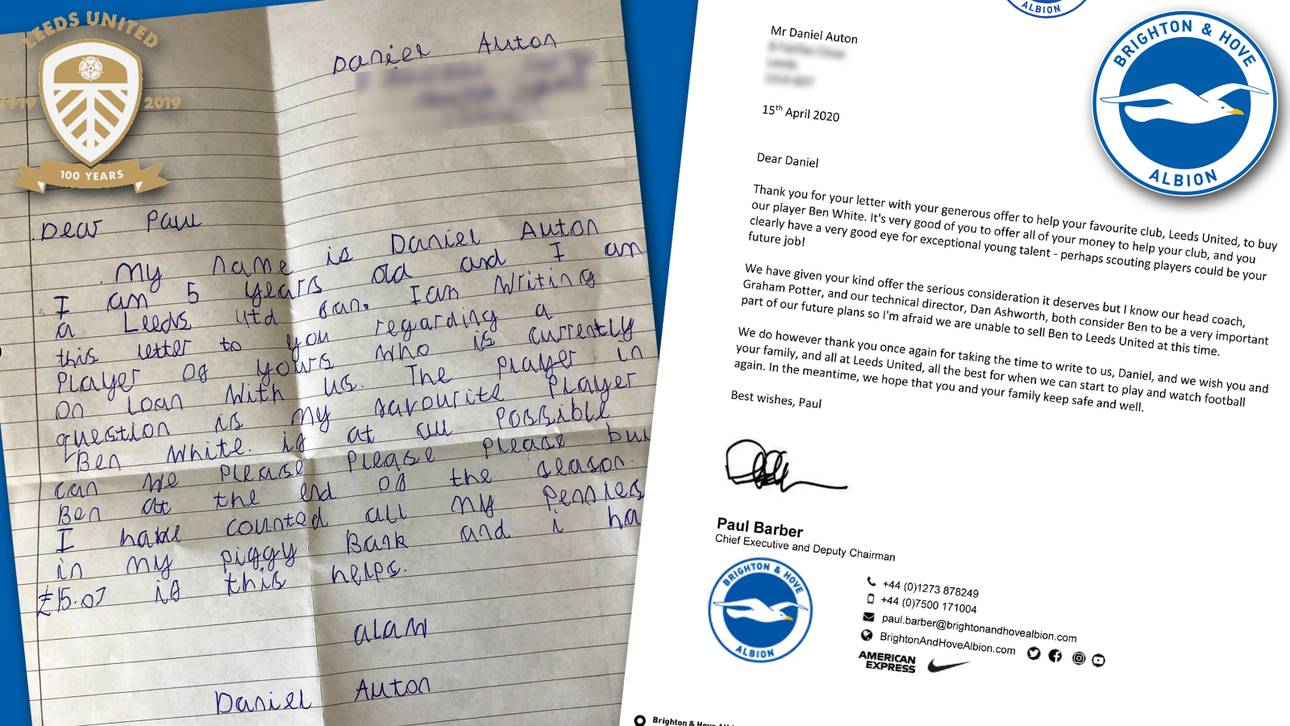 LEEDS UNITED
1919 2019
100 YEARS
Daniel Auton
Dear Paul
My name is Daniel Auton
I am 5 years old and I am
a Leeds utd fan. I am writing
this letter to you regarding a
Player of yours who is currently
on loan with us. The Player in
question is my favourite Player
Ben White. if at all Possible
can we Please Please Please bu
Ben at the end of the season.
I have counted all my Pennies
in my piggy Bank and i ha
£15.07 if this helps.
alaw
Daniel Auton
ALBION
BRIGHTON & HOVE
ALBION
Mr Daniel Auton
15th April 2020
Dear Daniel
Thank you for your letter with your generous offer to help your favourite club, Leeds United, to buy
our player Ben White. It's very good of you to offer all of your money to help your club, and you
clearly have a very good eye for exceptional young talent - perhaps scouting players could be your
future job!
We have given your kind offer the serious consideration it deserves but I know our head coach,
Graham Potter, and our technical director, Dan Ashworth, both consider Ben to be a very important
part of our future plans so I'm afraid we are unable to sell Ben to Leeds United at this time.
We do however thank you once again for taking the time to write to us, Daniel, and we wish you and
your family, and all at Leeds United, all the best for when we can start to play and watch football
again. In the meantime, we hope that you and your family keep safe and well.
Best wishes, Paul
Paul Barber
Chief Executive and Deputy Chairman
BRIGHTON & HOVE
ALBION
+44 (0)1273 878249
+44 (0)7500 171004
paul.barber@brightonandhovealbion.com
BrightonAndHoveAlbion.com
AMERICAN
EXPRESS
Brighton & Hove